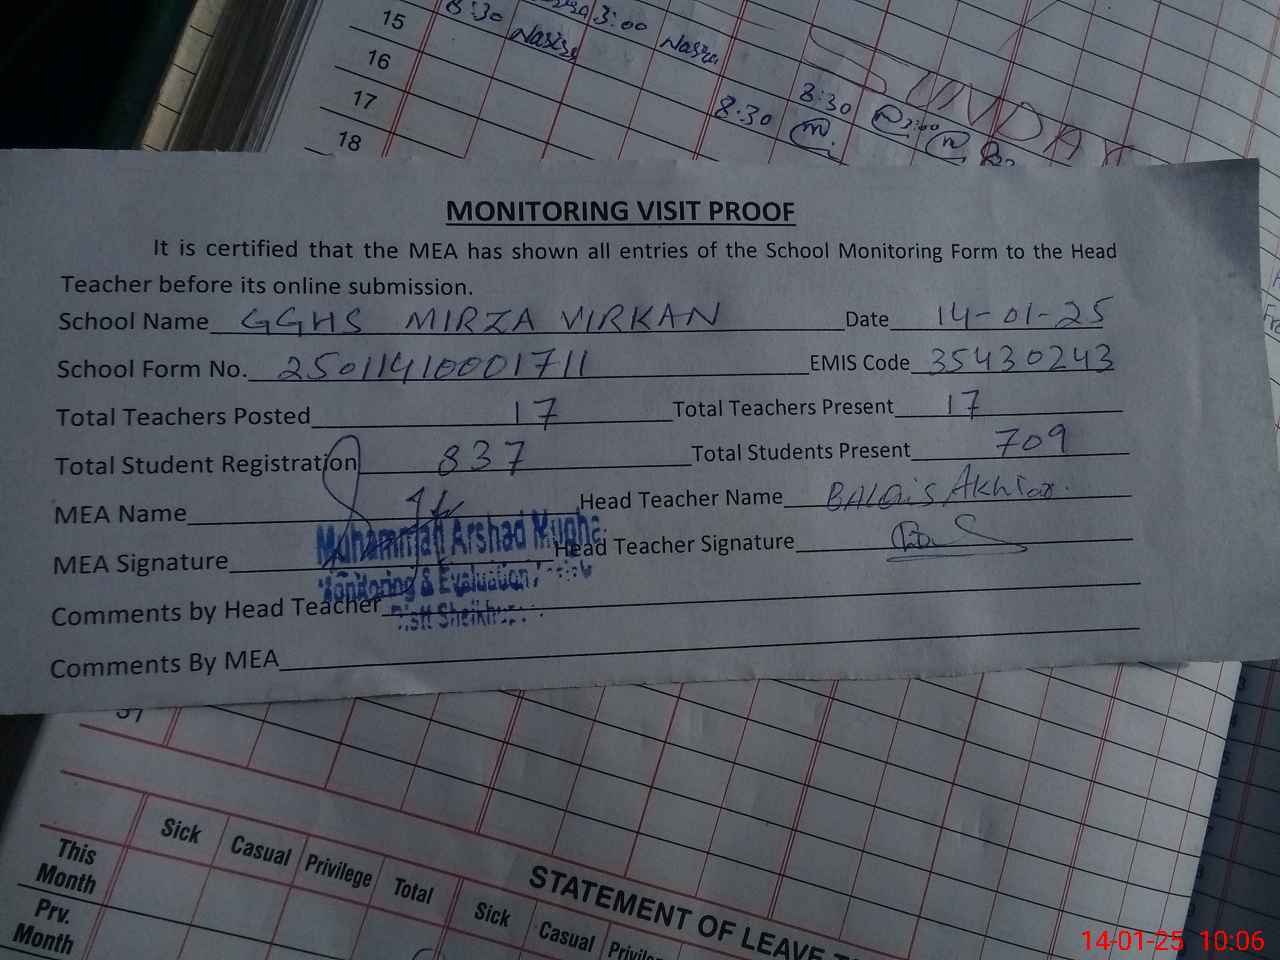 15 8:30 3:00
16 Nasira Nasira
17 8:30 8:30 3:00 SUNDAY
18
MONITORING VISIT PROOF
It is certified that the MEA has shown all entries of the School Monitoring Form to the Head
Teacher before its online submission.
School Name GGHS MIRZA VIRKAN Date 14-01-25
School Form No. 25011410001711 EMIS Code 35430243
Total Teachers Posted 17 Total Teachers Present 17
Total Student Registration 837 Total Students Present 709
MEA Name Head Teacher Name Akhtar
Muhammad Arshad Mughal
MEA Signature Head Teacher Signature
Monitoring & Evaluation
Comments by Head Teacher
Distt
Comments By MEA
Sick Casual Privilege Total Sick Casual
STATEMENT OF LEAVE
This Month
Prv. Month
14-01-25 10:06